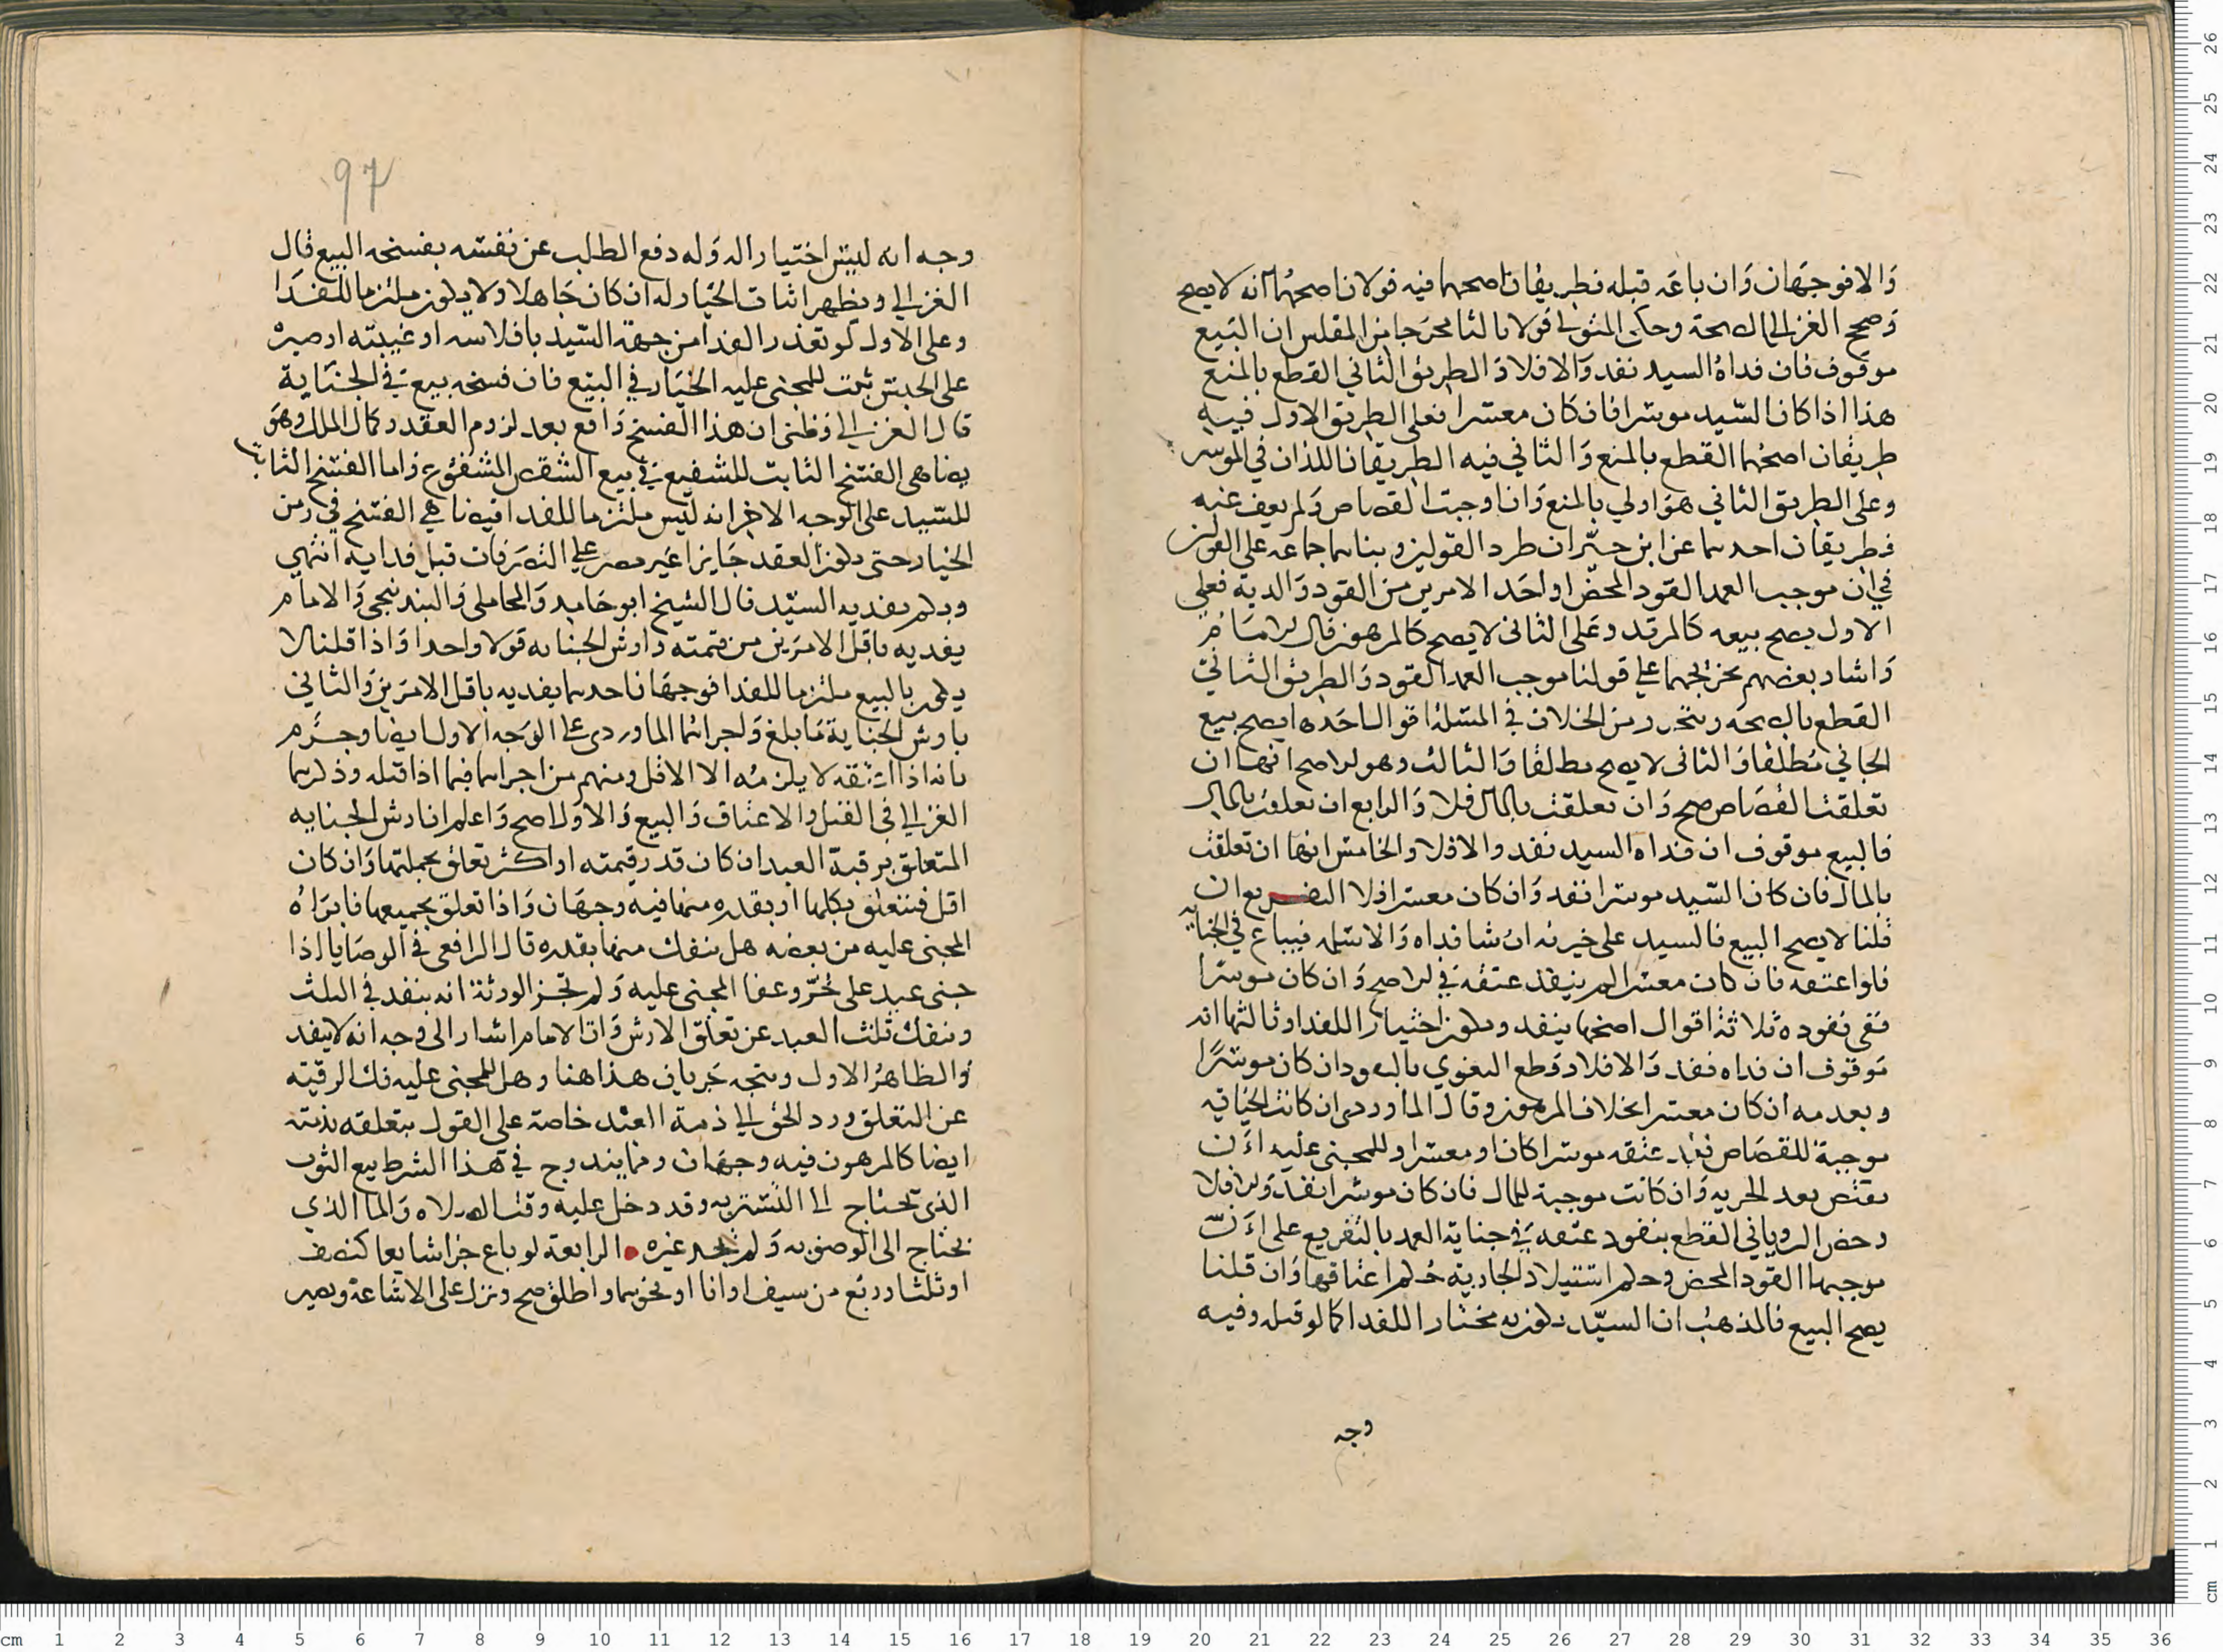 والا فوجهان وان باعه قبله فطريقان اصحهما فيه قولان اصحهما انه لا يصح
وصحح الغزالي الصحة وحكى المتولي قولا ثالثا مخرجا من المفلس ان البيع
موقوف فان فداه السيد نفد والا فلا والطريق الثاني القطع بالمنع
هذا اذا كان السيد موسرا فان كان معسرا فعلى الطريق الاول فيه
طريقان اصحهما القطع بالمنع والثاني فيه الطريقان اللذان في الموسر
وعلى الطريق الثاني هو اولي بالمنع وان اوجبت القصاص ولم يعف عنه
فطريقان احدهما عن ابن طرد القولين وبناهما جماعه على القولين
في ان موجب العمد القود المحض او احد الامرين من القود والدية فعلى
الاول يصح بيعه كالمرتد وعلى الثاني لا يصح كالمرهون قال الامام
واشار بعضهم تخريجهما على قولنا موجب العمد القود والطريق الثاني
القطع بالصحة ويتحرر من الخلاف في المسئلة اقوال احدها يصح بيع
الجاني مطلقا والثاني لا يصح مطلقا والثالث وهو الاصح انها ان
تعلقت القصاص صح وان تعلقت بالمال فلا والرابع ان تعلقت بالمال
فالبيع موقوف ان فداه السيد نفد والا فلا والخامس انها ان تعلقت
بالمال فان كان السيد موسرا نفد وان كان معسرا فلا التفريع ان
قلنا لا يصح البيع فالسيد على خيرته ان شا فداه والا سلمه فيباع في الجناية
فلو اعتقه فان كان معسرا لم ينفذ عتقه في الاصح وان كان موسرا
ففي نفوده ثلاثة اقوال اصحها ينفد ويكون اختيارا للفدا وثالثها انه
موقوف ان فداه نفد والا فلا وقطع البغوي بالنفود ان كان موسرا
وبعدمه ان كان معسرا بخلاف المرهون وقال الماوردي ان كانت الجناية
موجبة للقصاص نفد عتقه موسرا كان او معسرا وللمجني عليه ان
يقتص بعد الحريه وان كانت موجبة للمال فان كان موسرا نفد والا فلا
وخص الروياني القطع بنفود عتقه في جناية العمد بالتفريع على ان
موجبها القود المحض وحكم استيلاد الجارية حكم اعتاقها وان قلنا
يصح البيع فالمذهب ان السيد يكون به مختارا للفدا كما لو قبله وفيه
وجه
97
وجه انه ليس اختيارا له وله دفع الطلب عن نفسه بفسخه البيع قال
الغزالي ويظهر اثبات الخيار له ان كان جاهلا ولا يكون ملتزما للفدا
وعلى الاول لو تعذر الفدا من جهة السيد بافلاسه او غيبته او صبره
على الحبس ثبت للمجني عليه الخيار في البيع فان فسخه بيع في الجناية
قال الغزالي وظني ان هذا الفسخ واقع بعد لزوم العقد وكمال الملك وهو
يضاهي الفسخ الثابت للشفيع في بيع الشقص المشفوع واما الفسخ الثابت
للسيد على الوجه الاخر انه ليس ملتزما للفدا فيضاهي الفسخ في زمن
الخيار حتى يكون العقد جايزا غير مصر على التصرفات قبل فدايه انتهي
وبكم يفديه السيد قال الشيخ ابو حامد والمحاملي والبندنيجي والامام
يفديه باقل الامرين من قيمته وارش الجنايه قولا واحدا واذا قلنا لا
يكون بالبيع ملتزما للفدا فوجهان احدهما يفديه باقل الامرين والثاني
بارش الجناية ما بلغ الماوردي على الوجه الاول ايضا وجزم
بانه اذا اعتقه لا يلزمه الا الاقل ومنهم من اجراهما فيما اذا قتله وذكرهما
الغزالي في القتل والاعتاق والبيع والاول اصح واعلم ان ارش الجنايه
المتعلق برقبة العبد ان كان قدر قيمته او اكثر تعلق بجملتها وان كان
اقل فيتعلق بكلها او بقدره منها فيه وجهان واذا تعلق بجميعها فابراه
المجني عليه من بعضه هل ينفك منها بقدره قال الرافعي في الوصايا اذا
جنى عبد على حر وعفا المجني عليه ولم تجز الورثة انه ينفد في الثلث
وينفك ثلث العبد عن تعلق الارش وان الامام اشار الى وجه انه لا ينفد
والظاهر الاول ويتجه جريان هذا هنا وهل للمجني عليه فك الرقبة
عن التعلق ورد الحق الي ذمة العبد خاصة على القول بتعلقه بذمته
ايضا كالمرهون فيه وجهان ومما يندرج في هذا الشرط بيع الثوب
الذي يحتاج الى التستر به وقد دخل عليه وقت الصلاة والما الذي
يحتاج الى الوضوء به ولم يجد غيره الرابعة لو باع جزا شايعا كنصف
او ثلث او ربع من سيف او انا او نحوهما واطلق صح ونزل على الاشاعة ويصير